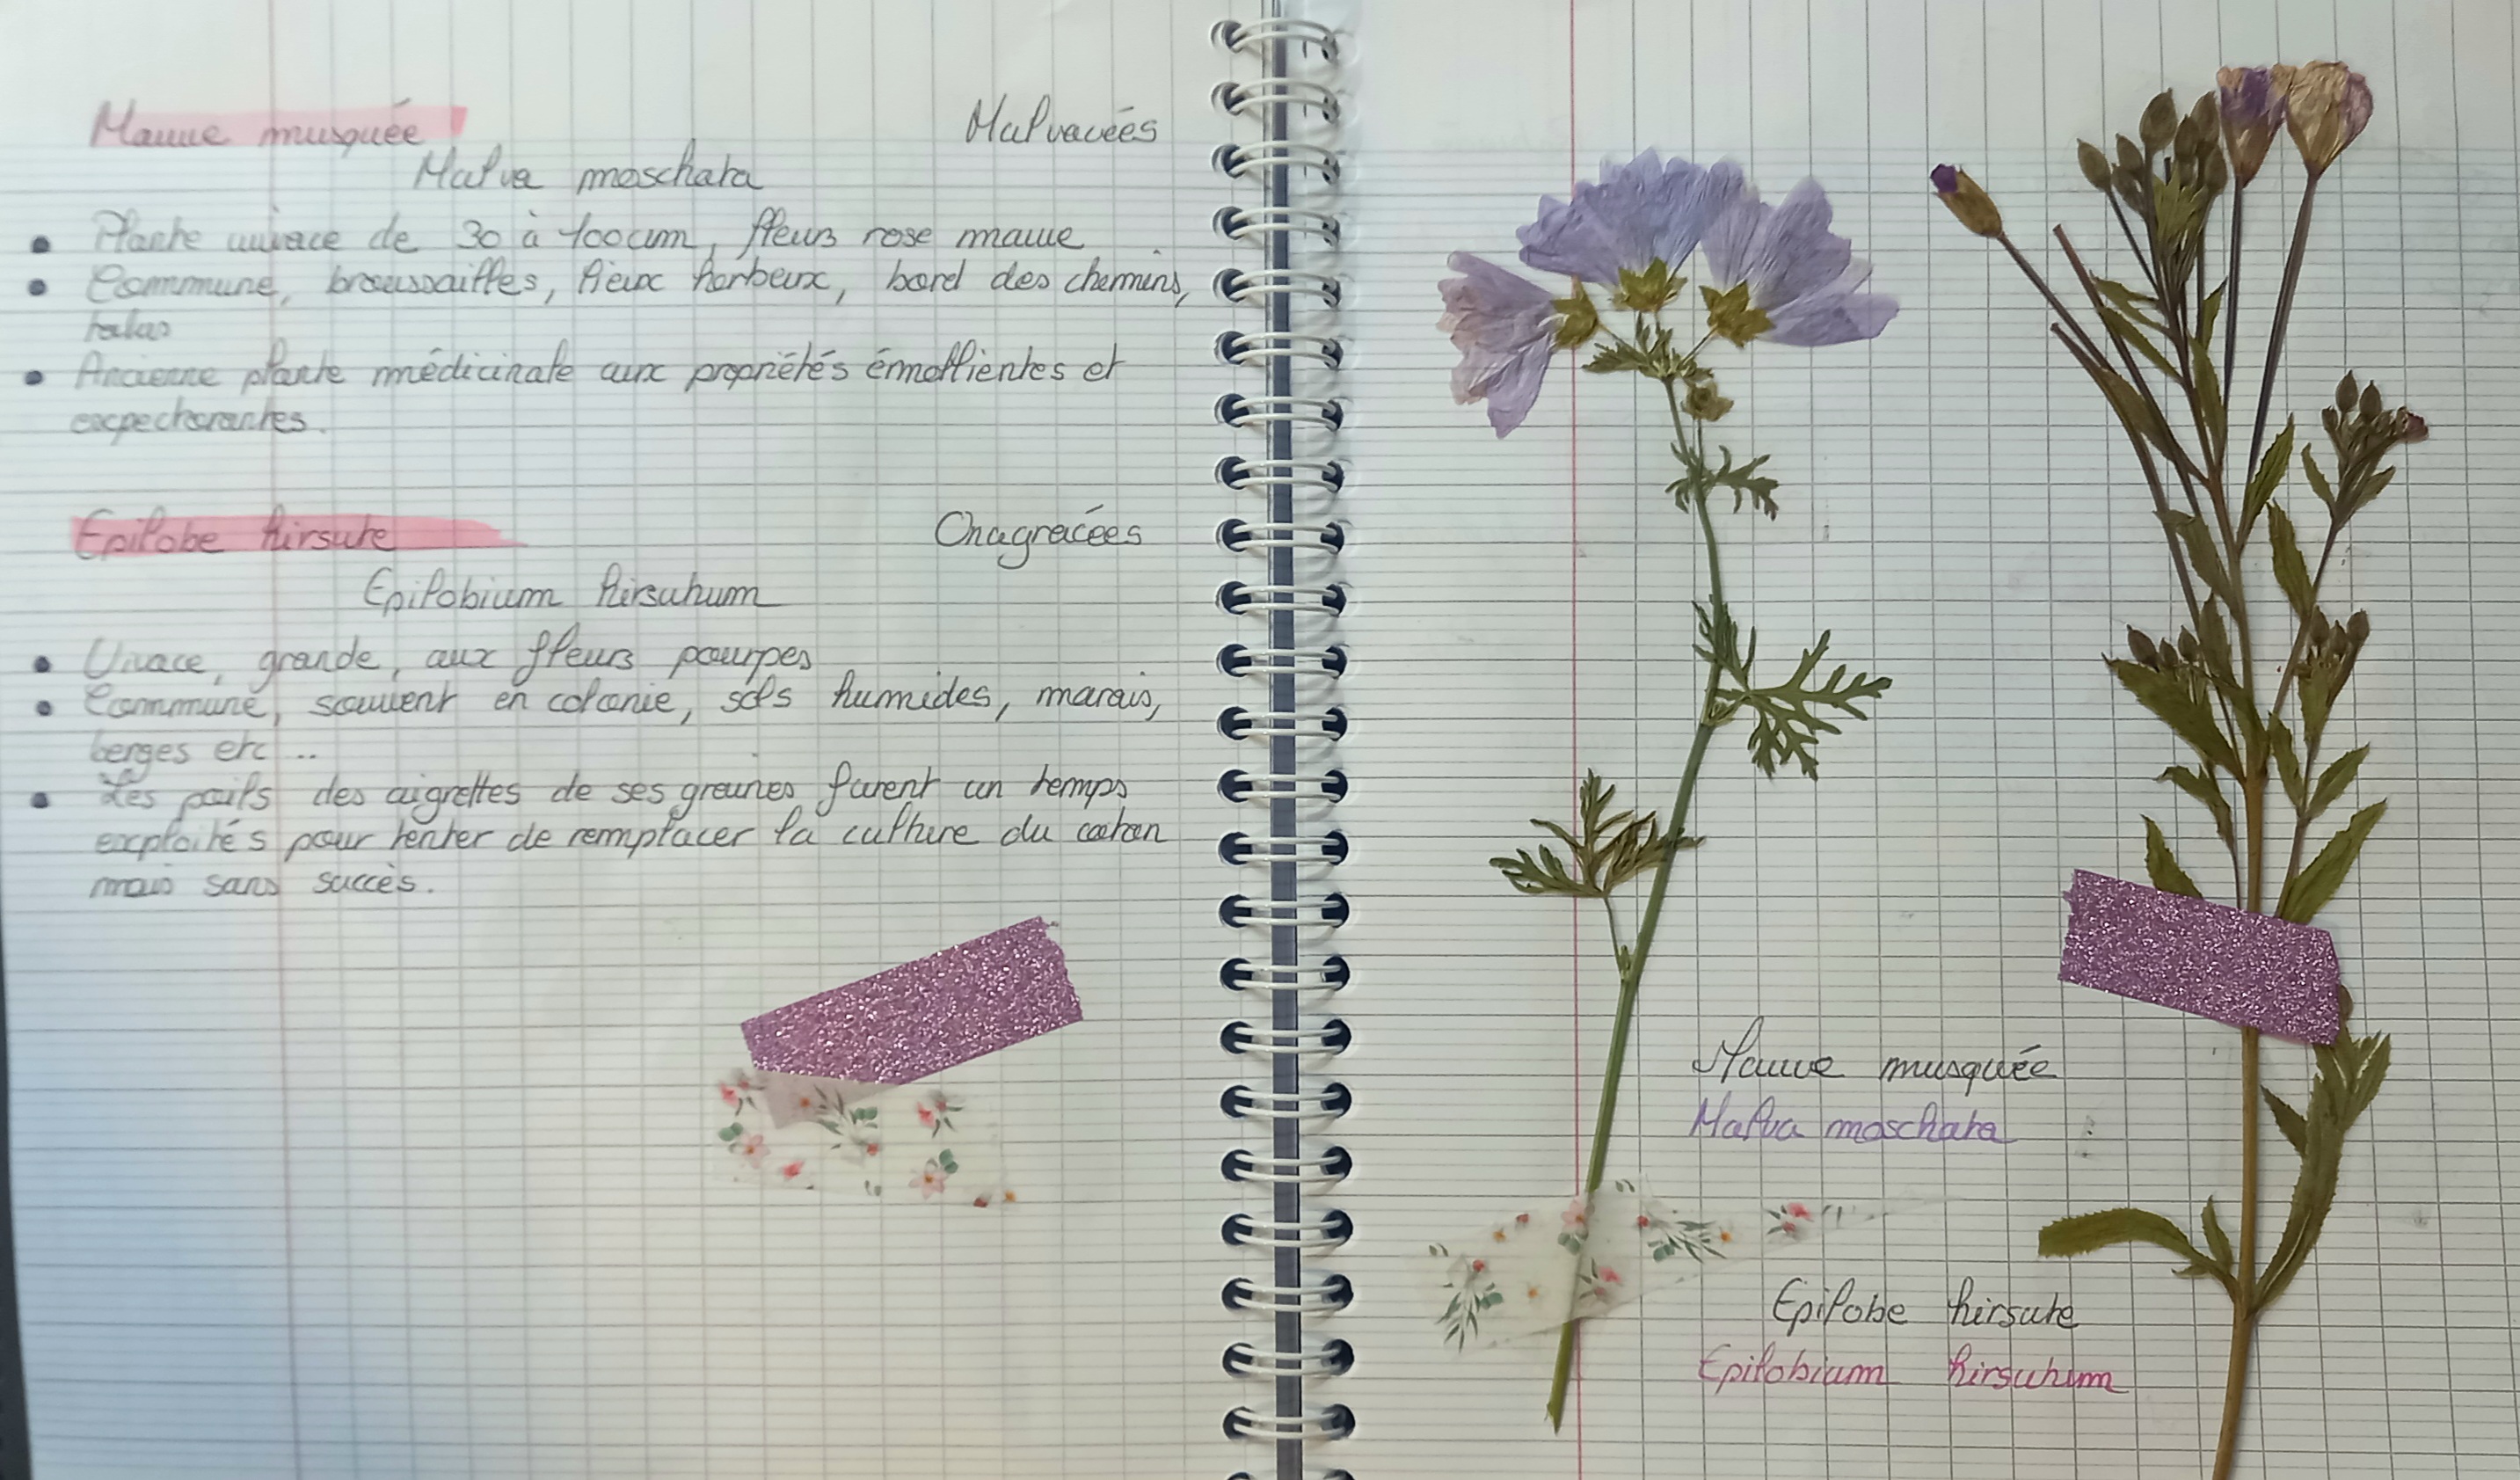 Mauve musquée Malvacées
Malva moschata
• Plante vivace de 30 à 100cm, fleurs rose mauve
• Commune, broussailles, lieux herbeux, bord des chemins,
talus
• Ancienne plante médicinale aux propriétés émollientes et
expectorantes.
Epilobe hirsute Onagracées
Epilobium hirsutum
• Vivace, grande, aux fleurs pourpes
• Commune, souvent en colonie, sols humides, marais,
berges etc...
• Les poils des aigrettes de ses graines furent un temps
exploités pour tenter de remplacer la culture du coton
mais sans succès.
Mauve musquée
Malva moschata
Epilobe hirsute
Epilobium hirsutum